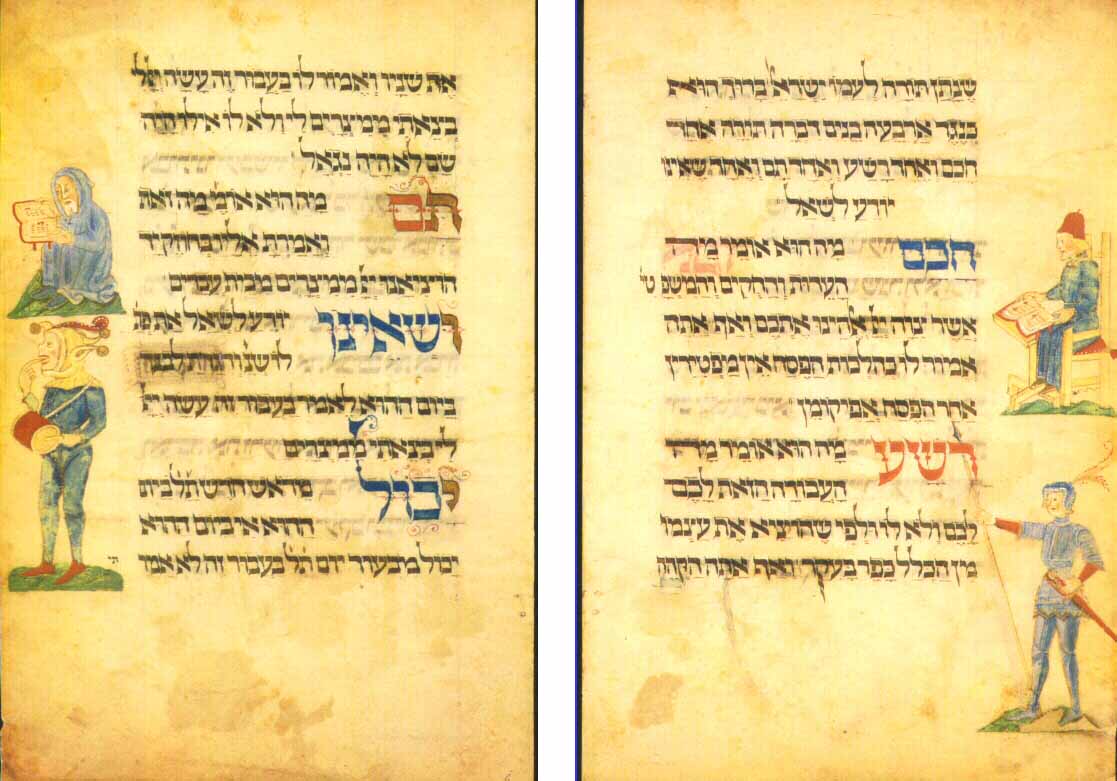 שנתן תורה לעמו ישראל ברוך הוא
כנגד ארבעה בנים דברה תורה אחד
חכם ואחד רשע ואחד תם ואחד שאינו
יודע לשאל
חכם מה הוא אומר מה
העדות והחקים והמשפטי
אשר צוה אלהינו אתכם ואף אתה
אמור לו כהלכות הפסח אין מפטירין
אחר הפסח אפיקומן
רשע מה הוא אומר מה
העבודה הזאת לכם
לכם ולא לו ולפי שהוציא את עצמו
מן הכלל כפר בעקר ואף אתה הקהה
את שניו ואמור לו בעבור זה עשה לי
בצאתי ממצרים לי ולא לו אילו היה
שם לא היה נגאל
תם מה הוא אומ' מה זאת
ואמרת אליו בחזק יד
הוציאנו ממצרים מבית עבדים
ושאינו יודע לשאל את פת
לו שנ' והגדת לבנך
ביום ההוא לאמר בעבור זה עשה
לי בצאתי ממצרים
יכול מראש חדש ת'ל' בית
ההוא אי ביום ההוא
יכול מבעוד יום ת'ל' בעבור זה לא אמר